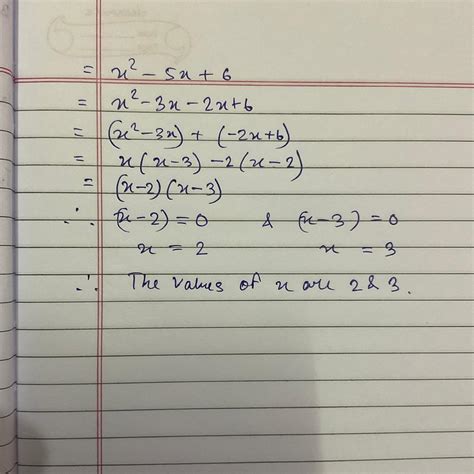 = x² - 5x + 6
= x² - 3x - 2x + 6
= (x² - 3x) + (-2x + 6)
= x(x - 3) - 2(x - 2)
= (x - 2)(x - 3)
∴ (x - 2) = 0 & (x - 3) = 0
x = 2 x = 3
∴ The values of x are 2 & 3.